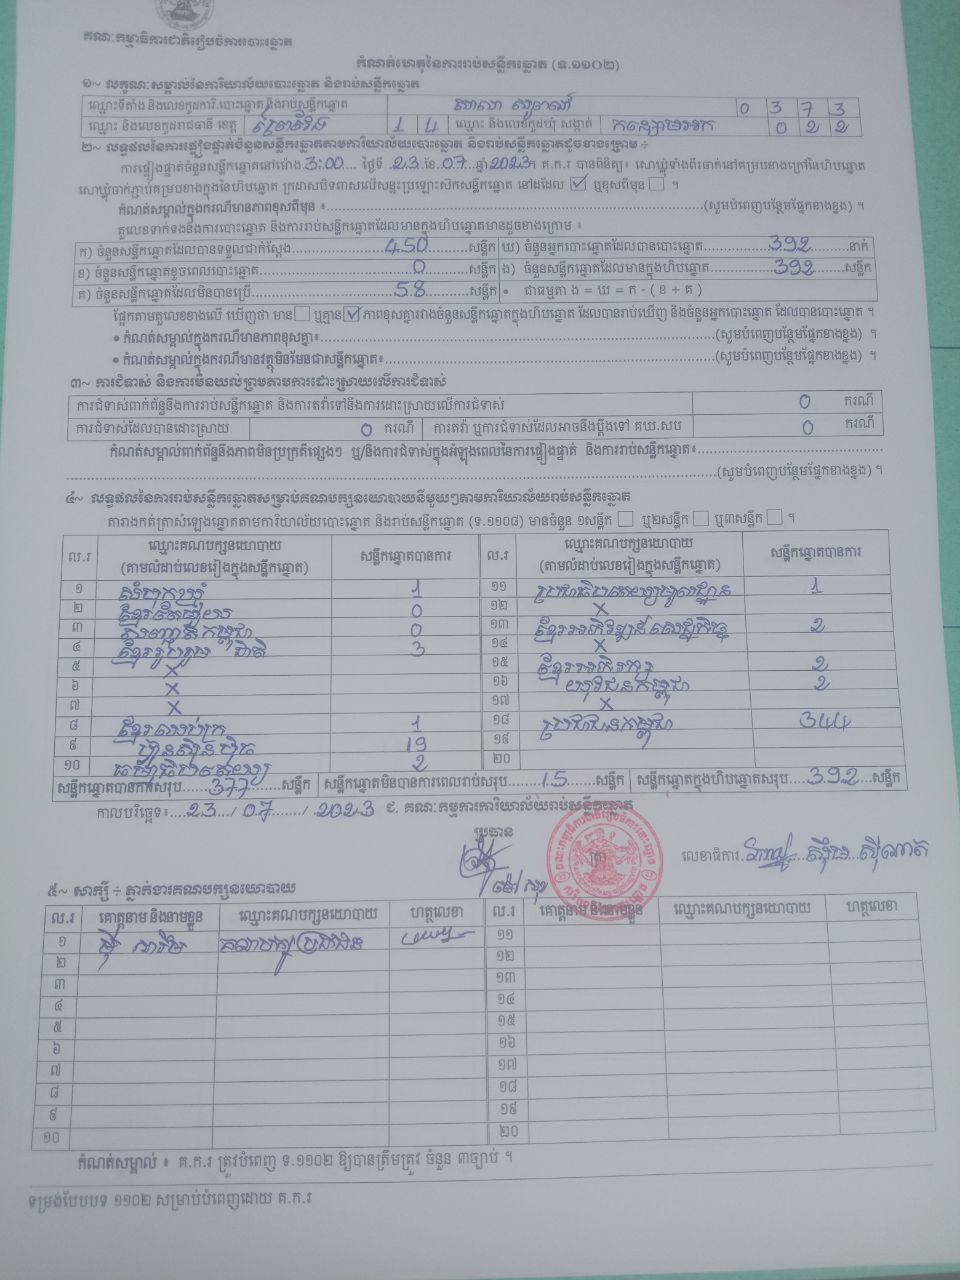 គណៈកម្មាធិការជាតិរៀបចំការបោះឆ្នោត
កំណត់ហេតុនៃការរាប់សន្លឹកឆ្នោត (ទ.១១០២)
១~ លក្ខណៈសម្គាល់នៃការិយាល័យបោះឆ្នោត និងរាប់សន្លឹកឆ្នោត
ឈ្មោះទីតាំង និងលេខកូដការិ.បោះឆ្នោត និងរាប់សន្លឹកឆ្នោត 0 3 7 3
ឈ្មោះ និងលេខកូដរាជធានី ខេត្ត ព្រៃវែង 1 4 ឈ្មោះ និងលេខកូដឃុំ សង្កាត់ កន្សោមអក 0 2 2
២~ លទ្ធផលនៃការផ្ទៀងផ្ទាត់ចំនួនសន្លឹកឆ្នោតតាមការិយាល័យបោះឆ្នោត និងរាប់សន្លឹកឆ្នោតដូចខាងក្រោម ÷
ការផ្ទៀងផ្ទាត់ចំនួនសន្លឹកឆ្នោតនៅម៉ោង 3:00 ថ្ងៃទី 23 ខែ 07 ឆ្នាំ 2023 គ.ក.រ បានពិនិត្យ៖ សោឃ្លុំទាំងពីរចាក់នៅគម្របខាងក្រៅនៃហិបឆ្នោត
សោឃ្លុំចាក់ភ្ជាប់គម្របខាងក្នុងនៃហិបឆ្នោត ក្រដាសបិទពាសលើសន្ទះប្រឡោះសិកសន្លឹកឆ្នោត នៅដដែល ☑ ឬខុសពីមុន ☐ ។
កំណត់សម្គាល់ក្នុងករណីមានភាពខុសពីមុន ៖ (សូមបំពេញបន្ថែមផ្នែកខាងខ្នង) ។
តួលេខទាក់ទងនឹងការបោះឆ្នោត និងការរាប់សន្លឹកឆ្នោតដែលមានក្នុងហិបឆ្នោតមានដូចខាងក្រោម ៖
ក) ចំនួនសន្លឹកឆ្នោតដែលបានទទួលជាក់ស្តែង 450 សន្លឹក ឃ) ចំនួនអ្នកបោះឆ្នោតដែលបានបោះឆ្នោត 392 នាក់
ខ) ចំនួនសន្លឹកឆ្នោតខូចពេលបោះឆ្នោត 0 សន្លឹក ង) ចំនួនសន្លឹកឆ្នោតដែលមានក្នុងហិបឆ្នោត 392 សន្លឹក
គ) ចំនួនសន្លឹកឆ្នោតដែលមិនបានប្រើ 58 សន្លឹក • ជាធម្មតា ង = ឃ = ក - ( ខ + គ )
ផ្អែកតាមតួលេខខាងលើ ឃើញថា មាន ☐ ឬគ្មាន ☑ ភាពខុសគ្នារវាងចំនួនសន្លឹកឆ្នោតក្នុងហិបឆ្នោត ដែលបានរាប់ឃើញ និងចំនួនអ្នកបោះឆ្នោត ដែលបានបោះឆ្នោត ។
• កំណត់សម្គាល់ក្នុងករណីមានភាពខុសគ្នា៖ (សូមបំពេញបន្ថែមផ្នែកខាងខ្នង) ។
• កំណត់សម្គាល់ក្នុងករណីមានវត្ថុមិនមែនជាសន្លឹកឆ្នោត៖ (សូមបំពេញបន្ថែមផ្នែកខាងខ្នង) ។
៣~ ការជំទាស់ និងការមិនយល់ព្រមតាមការដោះស្រាយលើការជំទាស់
ការជំទាស់ពាក់ព័ន្ធនឹងការរាប់សន្លឹកឆ្នោត និងការតវ៉ាទៅនឹងការដោះស្រាយលើការជំទាស់ 0 ករណី
ការជំទាស់ដែលបានដោះស្រាយ 0 ករណី ការតវ៉ា ឬការជំទាស់ដែលអាចនឹងប្តឹងទៅ គឃ.សប 0 ករណី
កំណត់សម្គាល់ពាក់ព័ន្ធនឹងភាពមិនប្រក្រតីផ្សេងៗ ឬ/និងការជំទាស់ក្នុងអំឡុងពេលនៃការផ្ទៀងផ្ទាត់ និងការរាប់សន្លឹកឆ្នោត៖
(សូមបំពេញបន្ថែមផ្នែកខាងខ្នង) ។
៤~ លទ្ធផលនៃការរាប់សន្លឹកឆ្នោតសម្រាប់គណបក្សនយោបាយនីមួយៗតាមការិយាល័យរាប់សន្លឹកឆ្នោត
តារាងកត់ត្រាសំឡេងឆ្នោតតាមការិយាល័យបោះឆ្នោត និងរាប់សន្លឹកឆ្នោត (ទ.១១០៨) មានចំនួន ១សន្លឹក ☐ ឬ២សន្លឹក ☐ ឬ៣សន្លឹក ☐ ។
ល.រ ឈ្មោះគណបក្សនយោបាយ (តាមលំដាប់លេខរៀងក្នុងសន្លឹកឆ្នោត) សន្លឹកឆ្នោតបានការ ល.រ ឈ្មោះគណបក្សនយោបាយ (តាមលំដាប់លេខរៀងក្នុងសន្លឹកឆ្នោត) សន្លឹកឆ្នោតបានការ
១ សំបុកឃ្មុំ 1 ១១ ប្រជាធិបតេយ្យមូលដ្ឋាន 1
២ ខ្មែរតែមួយ 0 ១២ X
៣ 0 ១៣ ខ្មែរអភិវឌ្ឍន៍សេដ្ឋកិច្ច 2
៤ ខ្មែររួបរួមជាតិ 3 ១៤ X
៥ X ១៥ ខ្មែរអភិរក្ស 2
៦ X ១៦ យុវជនកម្ពុជា 2
៧ X ១៧ X
៨ ខ្មែរឈប់ក្រ 1 ១៨ ប្រជាជនកម្ពុជា 344
៩ ហ៊្វុនស៊ិនប៉ិច 19 ១៩
១០ ធម្មាធិបតេយ្យ 2 ២០
សន្លឹកឆ្នោតបានការសរុប 377 សន្លឹក សន្លឹកឆ្នោតមិនបានការពេលរាប់សរុប 15 សន្លឹក សន្លឹកឆ្នោតក្នុងហិបឆ្នោតសរុប 392 សន្លឹក
កាលបរិច្ឆេទ៖ 23 / 07 / 2023 ជ. គណៈកម្មការការិយាល័យរាប់សន្លឹកឆ្នោត
ប្រធាន
លេខាធិការ
៥~ សាក្សី ÷ ភ្នាក់ងារគណបក្សនយោបាយ
ល.រ គោត្តនាម និងនាមខ្លួន ឈ្មោះគណបក្សនយោបាយ ហត្ថលេខា ល.រ គោត្តនាម និងនាមខ្លួន ឈ្មោះគណបក្សនយោបាយ ហត្ថលេខា
១ គណបក្សប្រជាជន ១១
២ ១២
៣ ១៣
៤ ១៤
៥ ១៥
៦ ១៦
៧ ១៧
៨ ១៨
៩ ១៩
១០ ២០
កំណត់សម្គាល់ ៖ គ.ក.រ ត្រូវបំពេញ ទ.១១០២ ឱ្យបានត្រឹមត្រូវ ចំនួន ៣ច្បាប់ ។
ទម្រង់បែបបទ ១១០២ សម្រាប់បំពេញដោយ គ.ក.រ